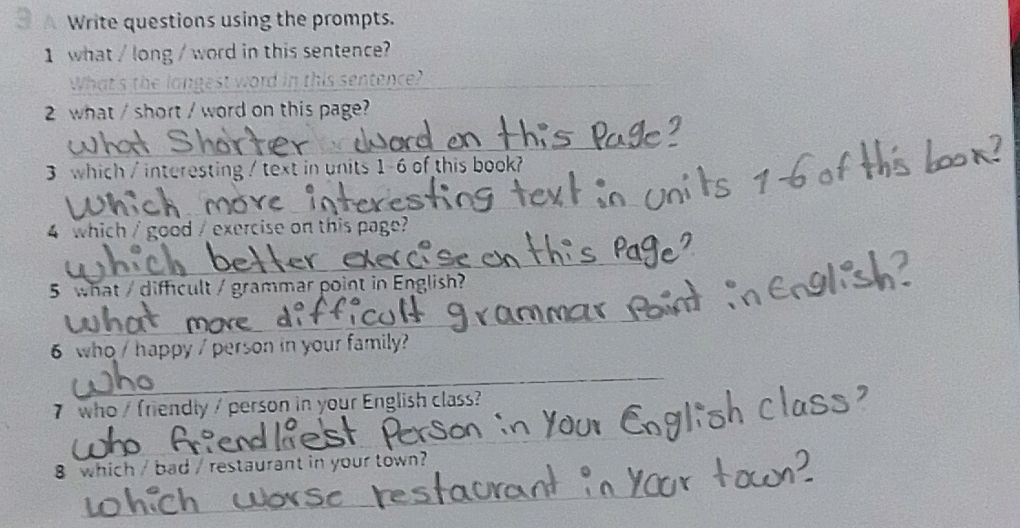 3 A Write questions using the prompts.
1 what / long / word in this sentence?
What's the longest word in this sentence?
2 what / short / word on this page?
what Shorter word on this Page?
3 which / interesting / text in units 1-6 of this book?
which more interesting text in units 1-6 of this book?
4 which / good / exercise on this page?
which better exercise on this Page?
5 what / difficult / grammar point in English?
what more difficult grammar Point in English?
6 who / happy / person in your family?
who
7 who / friendly / person in your English class?
who friendliest Person in Your English class?
8 which / bad / restaurant in your town?
which worse restaurant in Your town?